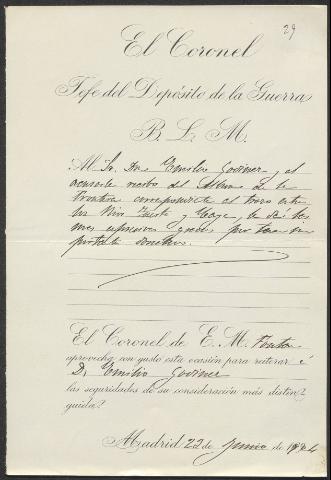 29
El Coronel
Jefe del Depósito de la Guerra
B. L. M.
Al Sr. Dn. Emilio Godinez, y al
acusarle recibo del Album de la
frontera correspondiente al trozo entre
los Rios y le dá las
mas expresivas gracias por
El Coronel de E. M.
aprovecha con gusto esta ocasión para reiterar á
D. Emilio Godinez
las seguridades de su consideración más distin-
guida.
Madrid 22 de Junio de 1884